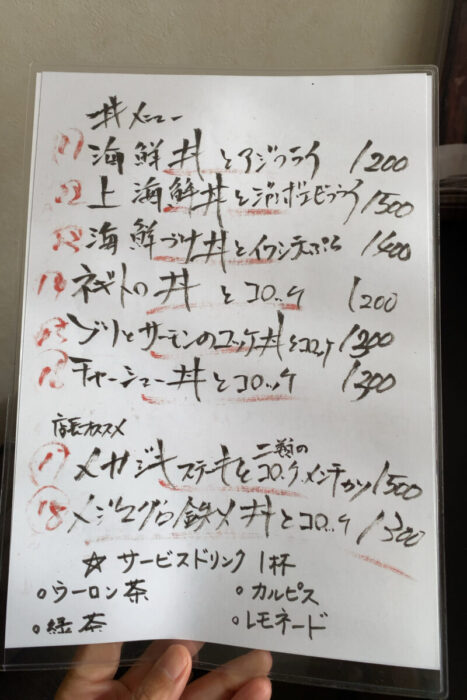 丼メニュー
⑪ 海鮮丼とアジフライ 1200
⑫ 上海鮮丼とジャンボエビフライ 1500
⑬ 海鮮づけ丼とイワシ天ぷら 1400
⑭ ネギトロ丼とコロッケ 1200
⑮ ブリとサーモンのユッケ丼とコロッケ 1300
⑯ チャーシュー丼とコロッケ 1300
店長オススメ
⑰ メカジキステーキと二種のコロッケ メンチカツ 1500
⑱ メジマグロ鉄火丼とコロッケ 1300
☆ サービスドリンク 1杯
○ウーロン茶 ○カルピス
○緑茶 ○レモネード